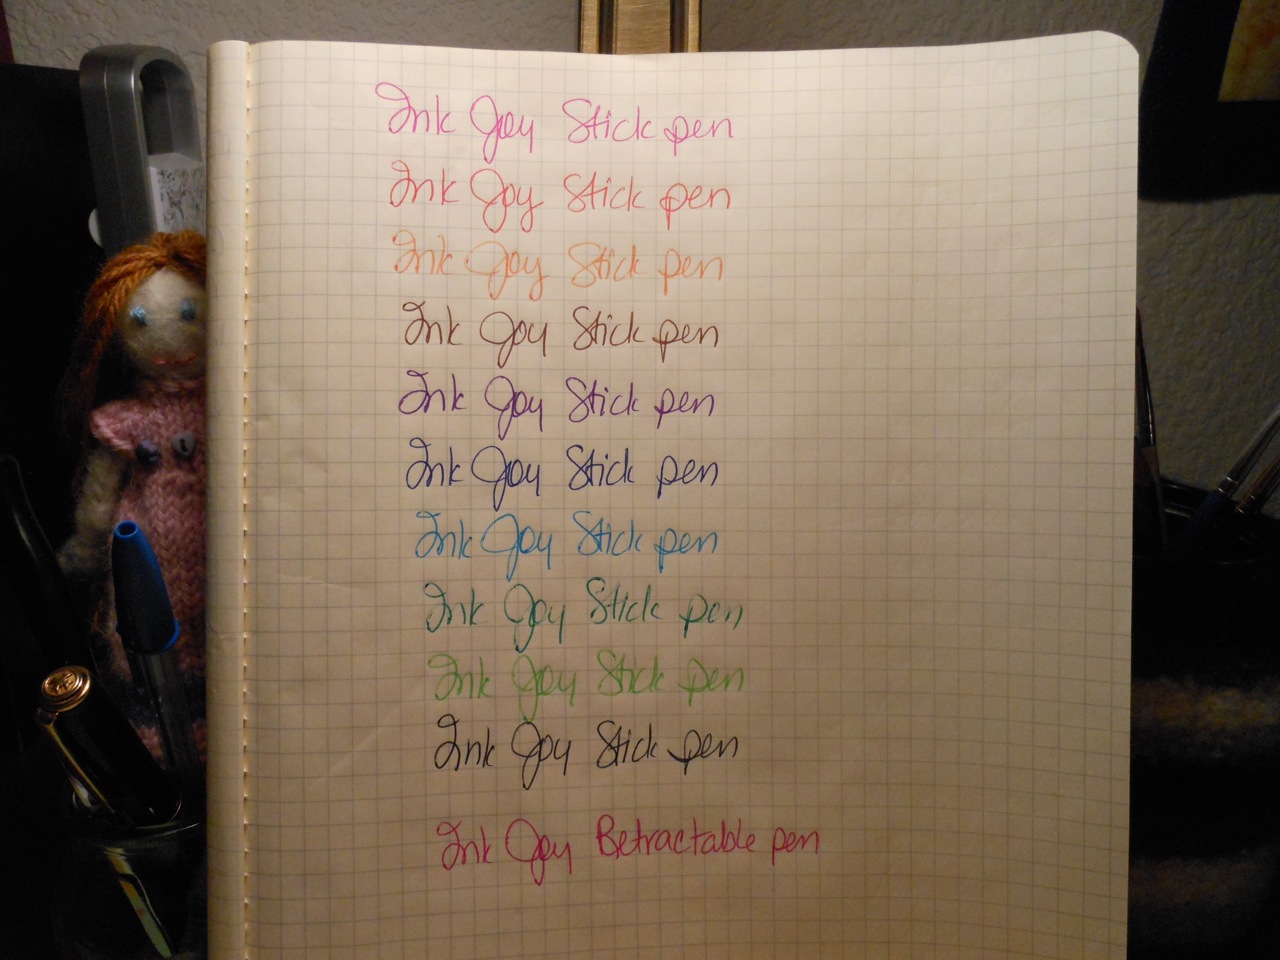 Ink Joy Stick pen
Ink Joy Stick pen
Ink Joy Stick pen
Ink Joy Stick pen
Ink Joy Stick pen
Ink Joy Stick pen
Ink Joy Stick pen
Ink Joy Stick pen
Ink Joy Stick pen
Ink Joy Stick pen
Ink Joy Retractable pen